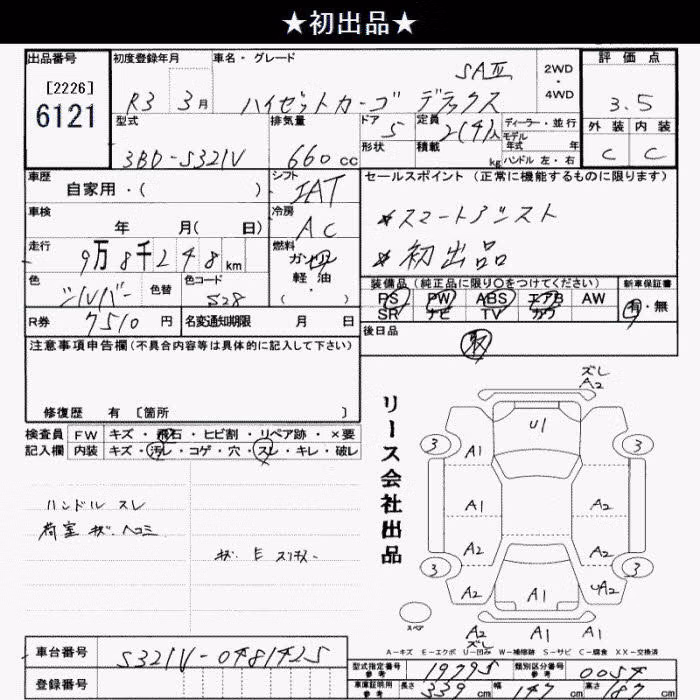 ★初出品★
出品番号
[2226]
6121
初度登録年月
R3 3月
車名・グレード
ハイゼットカーゴ デラックス
SAⅢ
2WD
・
4WD
評価点
3.5
外装 内装
C C
型式
3BD-S321V
排気量
660cc
ドア
5
形状
定員
2(4)人
積載
kg
ディーラー・並行
モデル
年式 年
ハンドル 左・右
車歴
自家用・( )
シフト
IAT
車検
年 月( 日)
冷房
AC
走行
9万8千248km
燃料
ガソリン
軽油
・
( )
色
シルバー
色替
色コード
S28
R券
7510円
名変通知期限 月 日
セールスポイント(正常に機能するものに限ります)
*スマートアシスト
*初出品
装備品(純正品に限り〇をつけてください)
PS PW ABS エアB AW
SR ナビ TV カワ
新車保証書
有・無
後日品
取
注意事項申告欄(不具合内容等は具体的に記入して下さい)
修復歴 有 〔箇所 〕
検査員
記入欄
FW キズ・飛石・ヒビ割・リペア跡・×要
内装 キズ・汚レ・コゲ・穴・スレ・キレ・破レ
ハンドル スレ
荷室 キズ・ヘコミ
リース会社出品
ズレ
A2
U1
3 3
A1
A1 A2
A2 A2
3 3
A2 A1 UA2
スペア
A2 A1 A1
ズレ
A-キズ E-エクボ U-凹み W-補修跡 S-サビ C-腐食 XX-交換済
車台番号
S321V-0481425
登録番号
型式指定番号
参考
19795
類別区分番号
参考
0054
車庫証明用
参考
長さ 339cm 幅 147cm 高さ 187cm